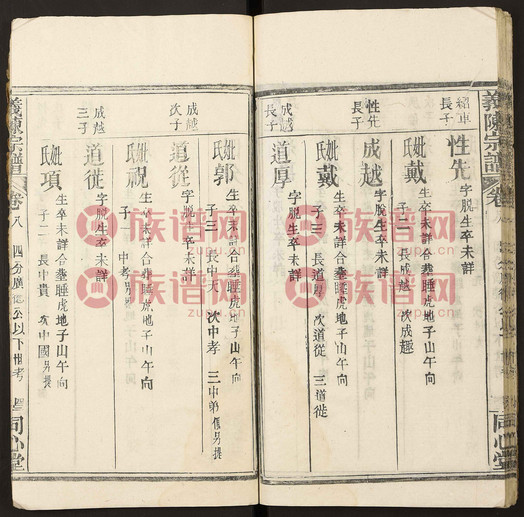 義陳宗譜
卷
同心堂
紹車
長子
性先
字脫生卒未詳
妣戴氏
生卒未詳合塟睡虎地子山午向
子二 長成越 次成趣
性先
長子
成越
字脫生卒未詳
妣戴氏
生卒未詳合塟睡虎地子山午向
子三 長道厚 次道從 三道徙
成越
長子
道厚
字脫生卒未詳
妣郭氏
生卒未詳合塟睡虎地子山午向
子三 長中天 次中孝 三中弟
成越
次子
道從
字脫生卒未詳
妣祝氏
生卒未詳合塟睡虎地子山午向
子一 中考
成越
三子
道徙
字脫生卒未詳
妣項氏
生卒未詳合塟睡虎地子山午向
子二 長中貴 次中國另提
義陳宗譜
卷八
四分廣 公以下世考
同心堂
族谱网
zupu.cn